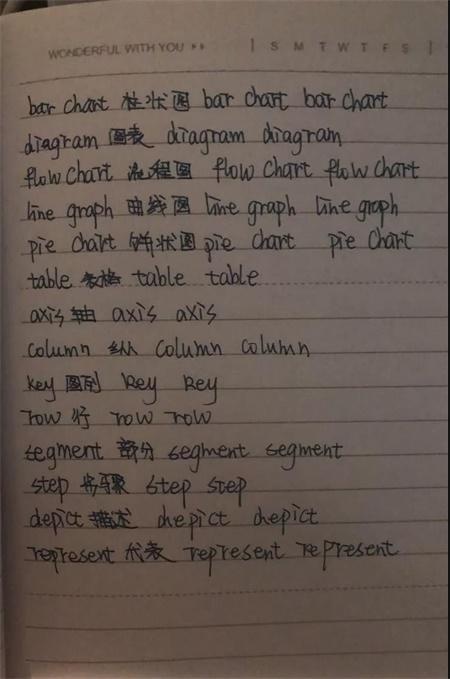 WONDERFUL WITH YOU | S M T W T F S |
bar chart 柱状图 bar chart bar chart
diagram 图表 diagram diagram
flow chart 流程图 flow chart flow chart
line graph 曲线图 line graph line graph
pie chart 饼状图 pie chart pie chart
table 表格 table table
axis 轴 axis axis
column 纵 column column
key 图例 key key
row 行 row row
segment 部分 segment segment
step 步骤 step step
depict 描述 depict depict
represent 代表 represent represent